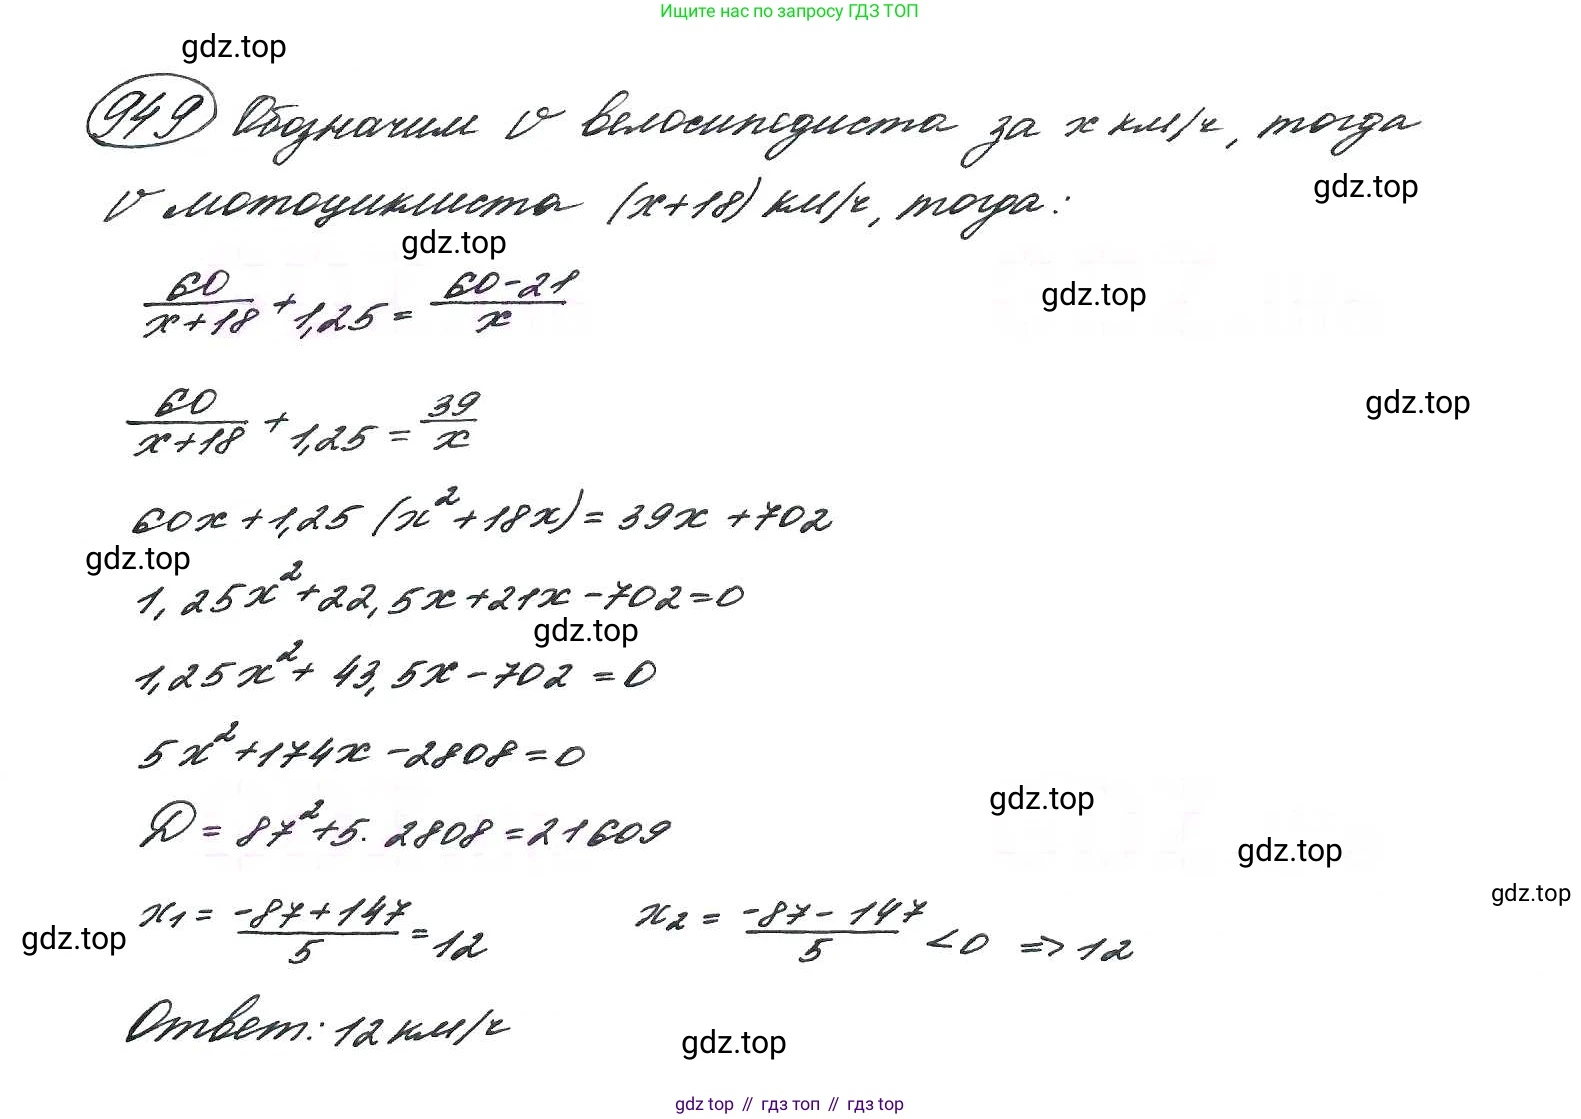 Ищите нас по запросу ГДЗ ТОП
gdz.top
949 Обозначим v велосипедиста за x км/ч, тогда
v мотоциклиста (x+18) км/ч, тогда:
gdz.top
gdz.top
60/(x+18) + 1,25 = (60-21)/x
gdz.top
60/(x+18) + 1,25 = 39/x
gdz.top
60x + 1,25 (x² + 18x) = 39x + 702
gdz.top
1,25x² + 22,5x + 21x - 702 = 0
gdz.top
1,25x² + 43,5x - 702 = 0
5x² + 174x - 2808 = 0
gdz.top
D = 87² + 5. 2808 = 21609
gdz.top
gdz.top
x₁ = (-87+147)/5 = 12 x₂ = (-87-147)/5 < 0 => 12
gdz.top
Ответ: 12 км/ч
gdz.top
gdz top // гдз топ // гдз top